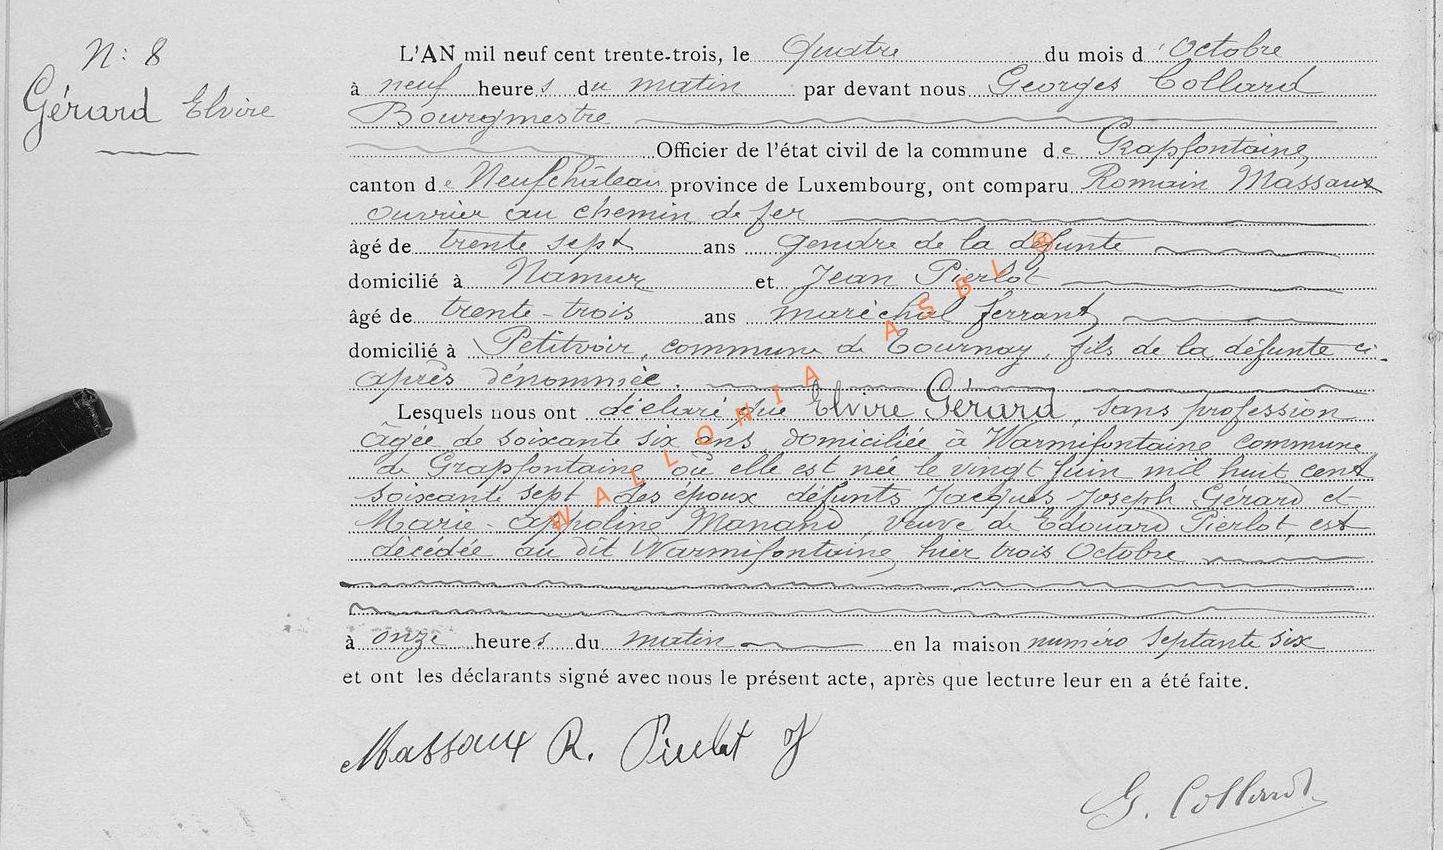 N: 8
Gérard Elvire
L'AN mil neuf cent trente-trois, le quatre du mois d'Octobre
à neuf heures du matin par devant nous Georges Collard
Bourgmestre
Officier de l'état civil de la commune de Grapfontaine,
canton de Neufchâteau province de Luxembourg, ont comparu Romain Massaux
ouvrier au chemin de fer
âgé de trente sept ans gendre de la défunte
domicilié à Namur et Jean Pierlot
âgé de trente-trois ans maréchal ferrant
domicilié à Petitvoir, commune de Tournay, fils de la défunte ci-
après dénommée.
Lesquels nous ont déclaré que Elvire Gérard, sans profession
âgée de soixante six ans, domiciliée à Warmifontaine commune
de Grapfontaine où elle est née le vingt juin mil huit cent
soixante sept des époux défunts Jacques Joseph Gérard et
Marie-Appoline Manand, veuve de Edouard Pierlot, est
décédée au dit Warmifontaine, hier trois Octobre
à onze heures du matin en la maison numéro septante six
et ont les déclarants signé avec nous le présent acte, après que lecture leur en a été faite.
Massaux R. Pierlot J
G. Collard
WALLONIA ASBL ®